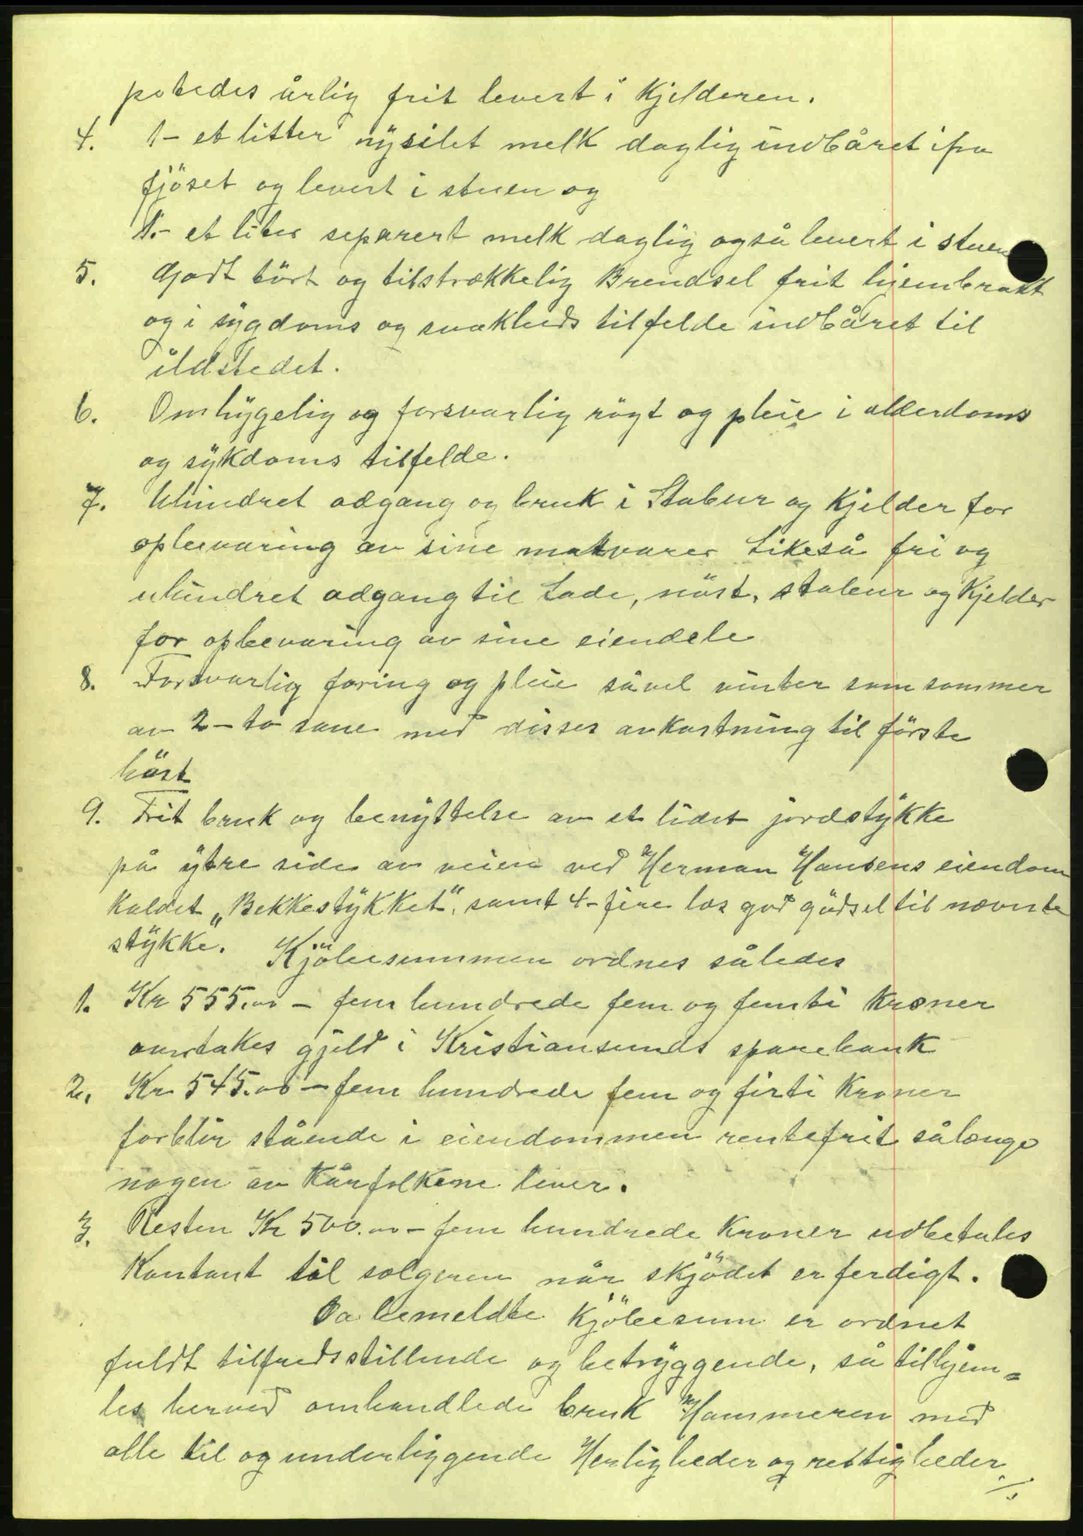 potedes årlig frit levert i Kjelderen.
4. 1- et litter nysilet melk daglig indbåret ifra
fjöset og levert i stuen og
1.- et liter separert melk daglig også levert i stuen
5. Godt tört og tilstrækkelig Brendsel frit hjembrakt
og i sygdoms og svakheds tilfelde indbåret til
ildstedet.
6. Omhygelig og forsvarlig rögt og pleie i alderdoms
og sykdoms tilfelde.
7. Uhindret adgang og bruk i Stabur og Kjelder for
opbevaring av sine matvarer Likeså fri og
uhindret adgang til Lade, nöst, stabur og Kjelder
for opbevaring av sine eiendele
8. Forsvarlig foring og pleie såvel vinter som sommer
av 2- to saue med disses avkastning til förste
höst
9. Frit bruk og benyttelse av et lidet jordstykke
på ytre side av veien ved Herman Hansens eiendom
kaldet „Bekkestykket", samt 4- fire las god gödsel til nævnte
stykke". Kjöbesummen ordnes således
1. Kr 555.00 - fem hundrede fem og femti Kroner
overtakes gjeld i Kristiansunds sparebank
2. Kr 545.00 - fem hundrede fem og firti Kroner
forblir stående i eiendommen rentefrit sålænge
nogen av Kårfolkene lever.
3. Resten Kr 500.00 - fem hundrede Kroner udbetales
Kontant til solgeren når skjödet er ferdigt.
Da bemeldte Kjöbesum er ordnet
fuldt tilfredsstillende og betryggende, så tilhjem=
les herved omhandlede bruk Hammeren med
alle til og underliggende Herligheder og rettigheder
./.